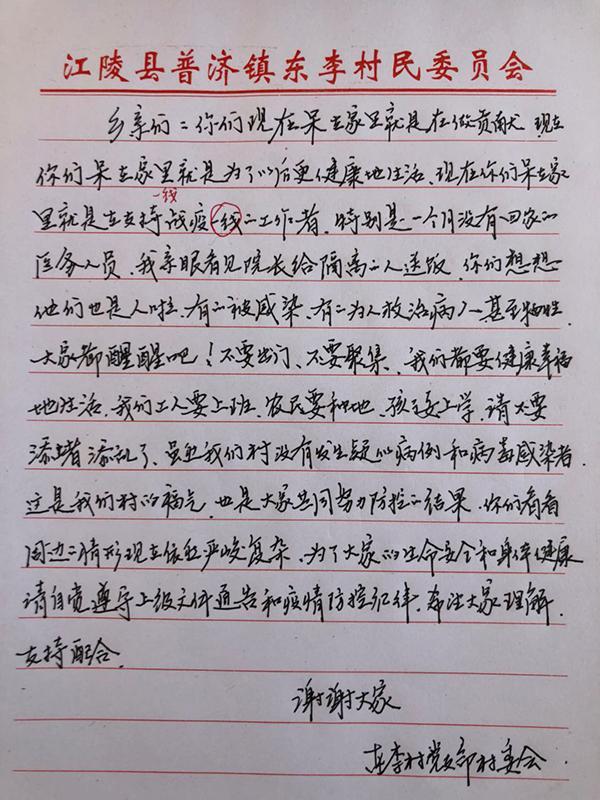 江陵县普济镇东李村民委员会
乡亲们：你们现在呆在家里就是在做贡献 现在
你们呆在家里就是为了以后更健康地生活、现在你们呆在家
一线
里就是在支持战疫一线的工作者，特别是一个月没有回家的
医务人员、我亲眼看见院长给隔离的人送饭，你们想想
他们也是人啦，有的被感染、有的为人救治病人甚至牺牲，
大家都醒醒吧！不要出门、不要聚集、我们都要健康幸福
地生活、我们工人要上班、农民要种地、孩子要上学，请不要
添堵添乱了、虽然我们村没有发生疑似病例和病毒感染者
这是我们村的福气，也是大家共同努力防控的结果，你们看看
周边的情形现在依然严峻复杂，为了大家的生命安全和身体健康
请自觉遵守上级文件通告和疫情防控纪律，希望大家理解．
支持配合．
谢谢大家
东李村党支部村委会